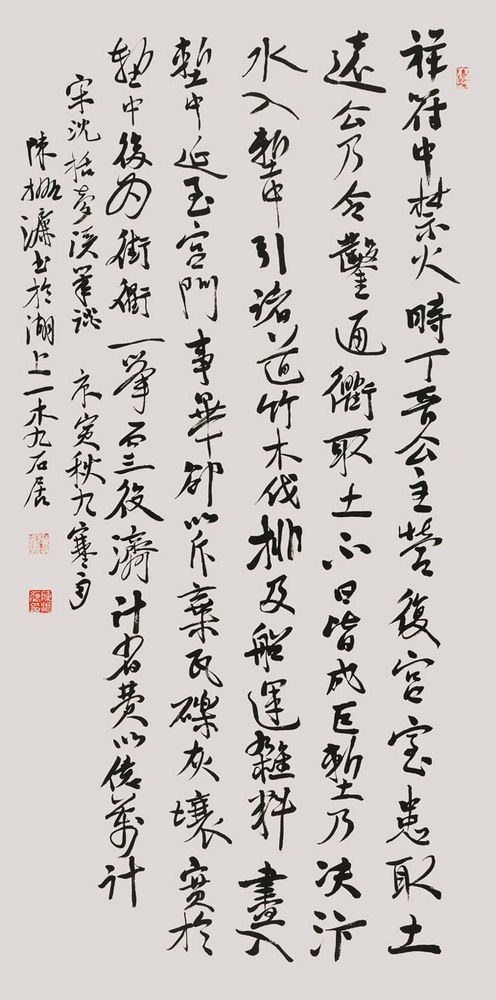 祥符中禁火時丁晉公主營復宮室患取土
遠公乃令鑿通衢取土不日皆成巨塹乃决汴
水入塹中引諸道竹木伐排及船運雜料盡入
塹中延至宮門事畢卻以斥棄瓦礫灰壤實於
塹中後为街衢一舉而三役濟計省費以億萬計
宋沈括夢溪筆談 庚寅秋九寒
陳振濂书於湖上一木九石居